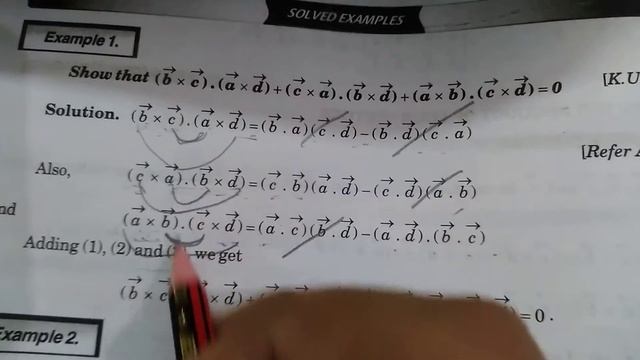 SOLVED EXAMPLES
Example 1.
Show that (b⃗ × c⃗).(a⃗ × d⃗)+(c⃗ × a⃗).(b⃗ × d⃗)+(a⃗ × b⃗).(c⃗ × d⃗)=0 [K.U
Solution. (b⃗ × c⃗).(a⃗ × d⃗)=(b⃗ . a⃗)(c⃗ . d⃗)–(b⃗ . d⃗)(c⃗ . a⃗)
[Refer
Also, (c⃗ × a⃗).(b⃗ × d⃗)=(c⃗ . b⃗)(a⃗ . d⃗)–(c⃗ . d⃗)(a⃗ . b⃗)
nd (a⃗ × b⃗).(c⃗ × d⃗)=(a⃗ . c⃗)(b⃗ . d⃗)–(a⃗ . d⃗).(b⃗ . c⃗)
Adding (1), (2) and we get
(b⃗ × c × d⃗) =0.
Example 2.